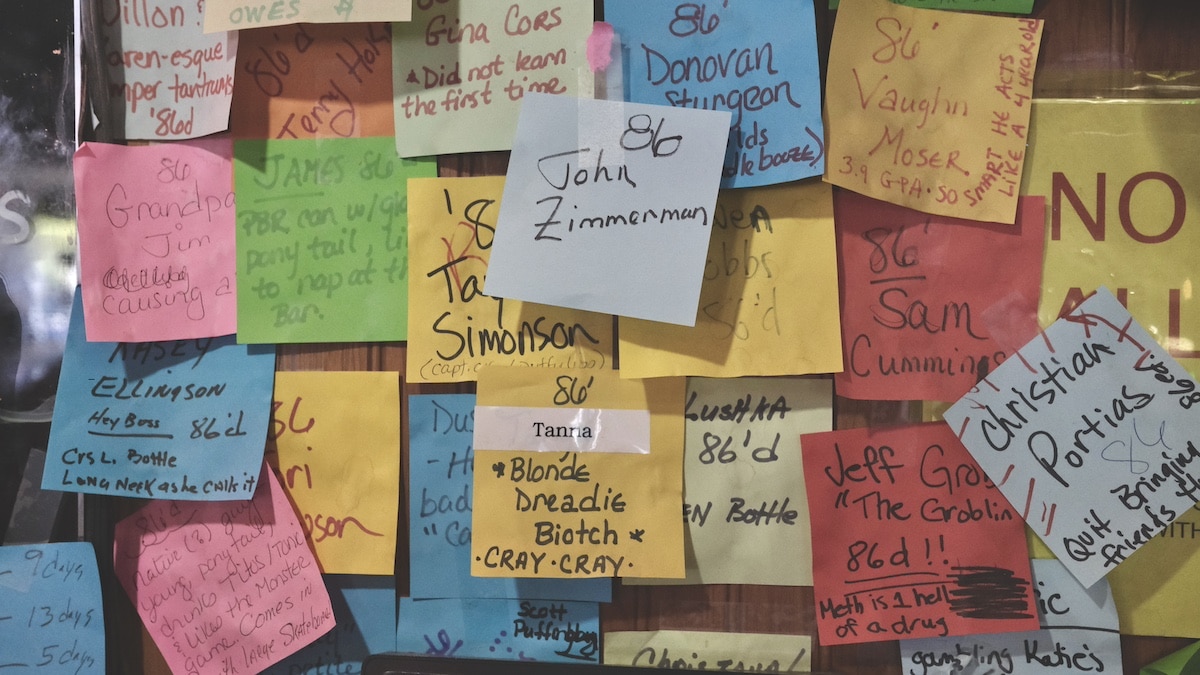 Dillon!
aren-esque
mper tantrums
'86d
OWES $
86'd
Terry
Gina Cors
*Did not learn
the first time
86'
Donovan
Sturgeon
86'
Vaughn
Moser
3.9 GPA. SO SMART HE ACTS
LIKE A 4 year old
NO
86
Grandpa
Jim
causing a
JAMES 86'
PBR can w/
pony tail,
to nap at th
Bar.
'8
Simonson
86
John
Zimmerman
bbs
86'd
86'
Sam
Cummings
KASEY
-ELLINGSON
Hey Boss 86'd
Crs L. Bottle
Long Neck as he calls it
86
ri
son
Dus
- H
bad
"Ca
86'
Tanna
*Blonde
Dreadie
Biotch*
.CRAY.CRAY.
LUSHKA
86'd
EN Bottle
Jeff Gro
"The Groblin
86d!!
Meth is 1 hell
of a drug
Christian
Portias
86ed!
Quit Bringing
friends
- 9 days
- 13 days
- 5 days
86'd
native(?) guy
young, ponytail,
drinks Tites/Tonic
& likes the Monster
game. Comes in
with large skateboard
Scott
ic
gambling Katie's
WITH